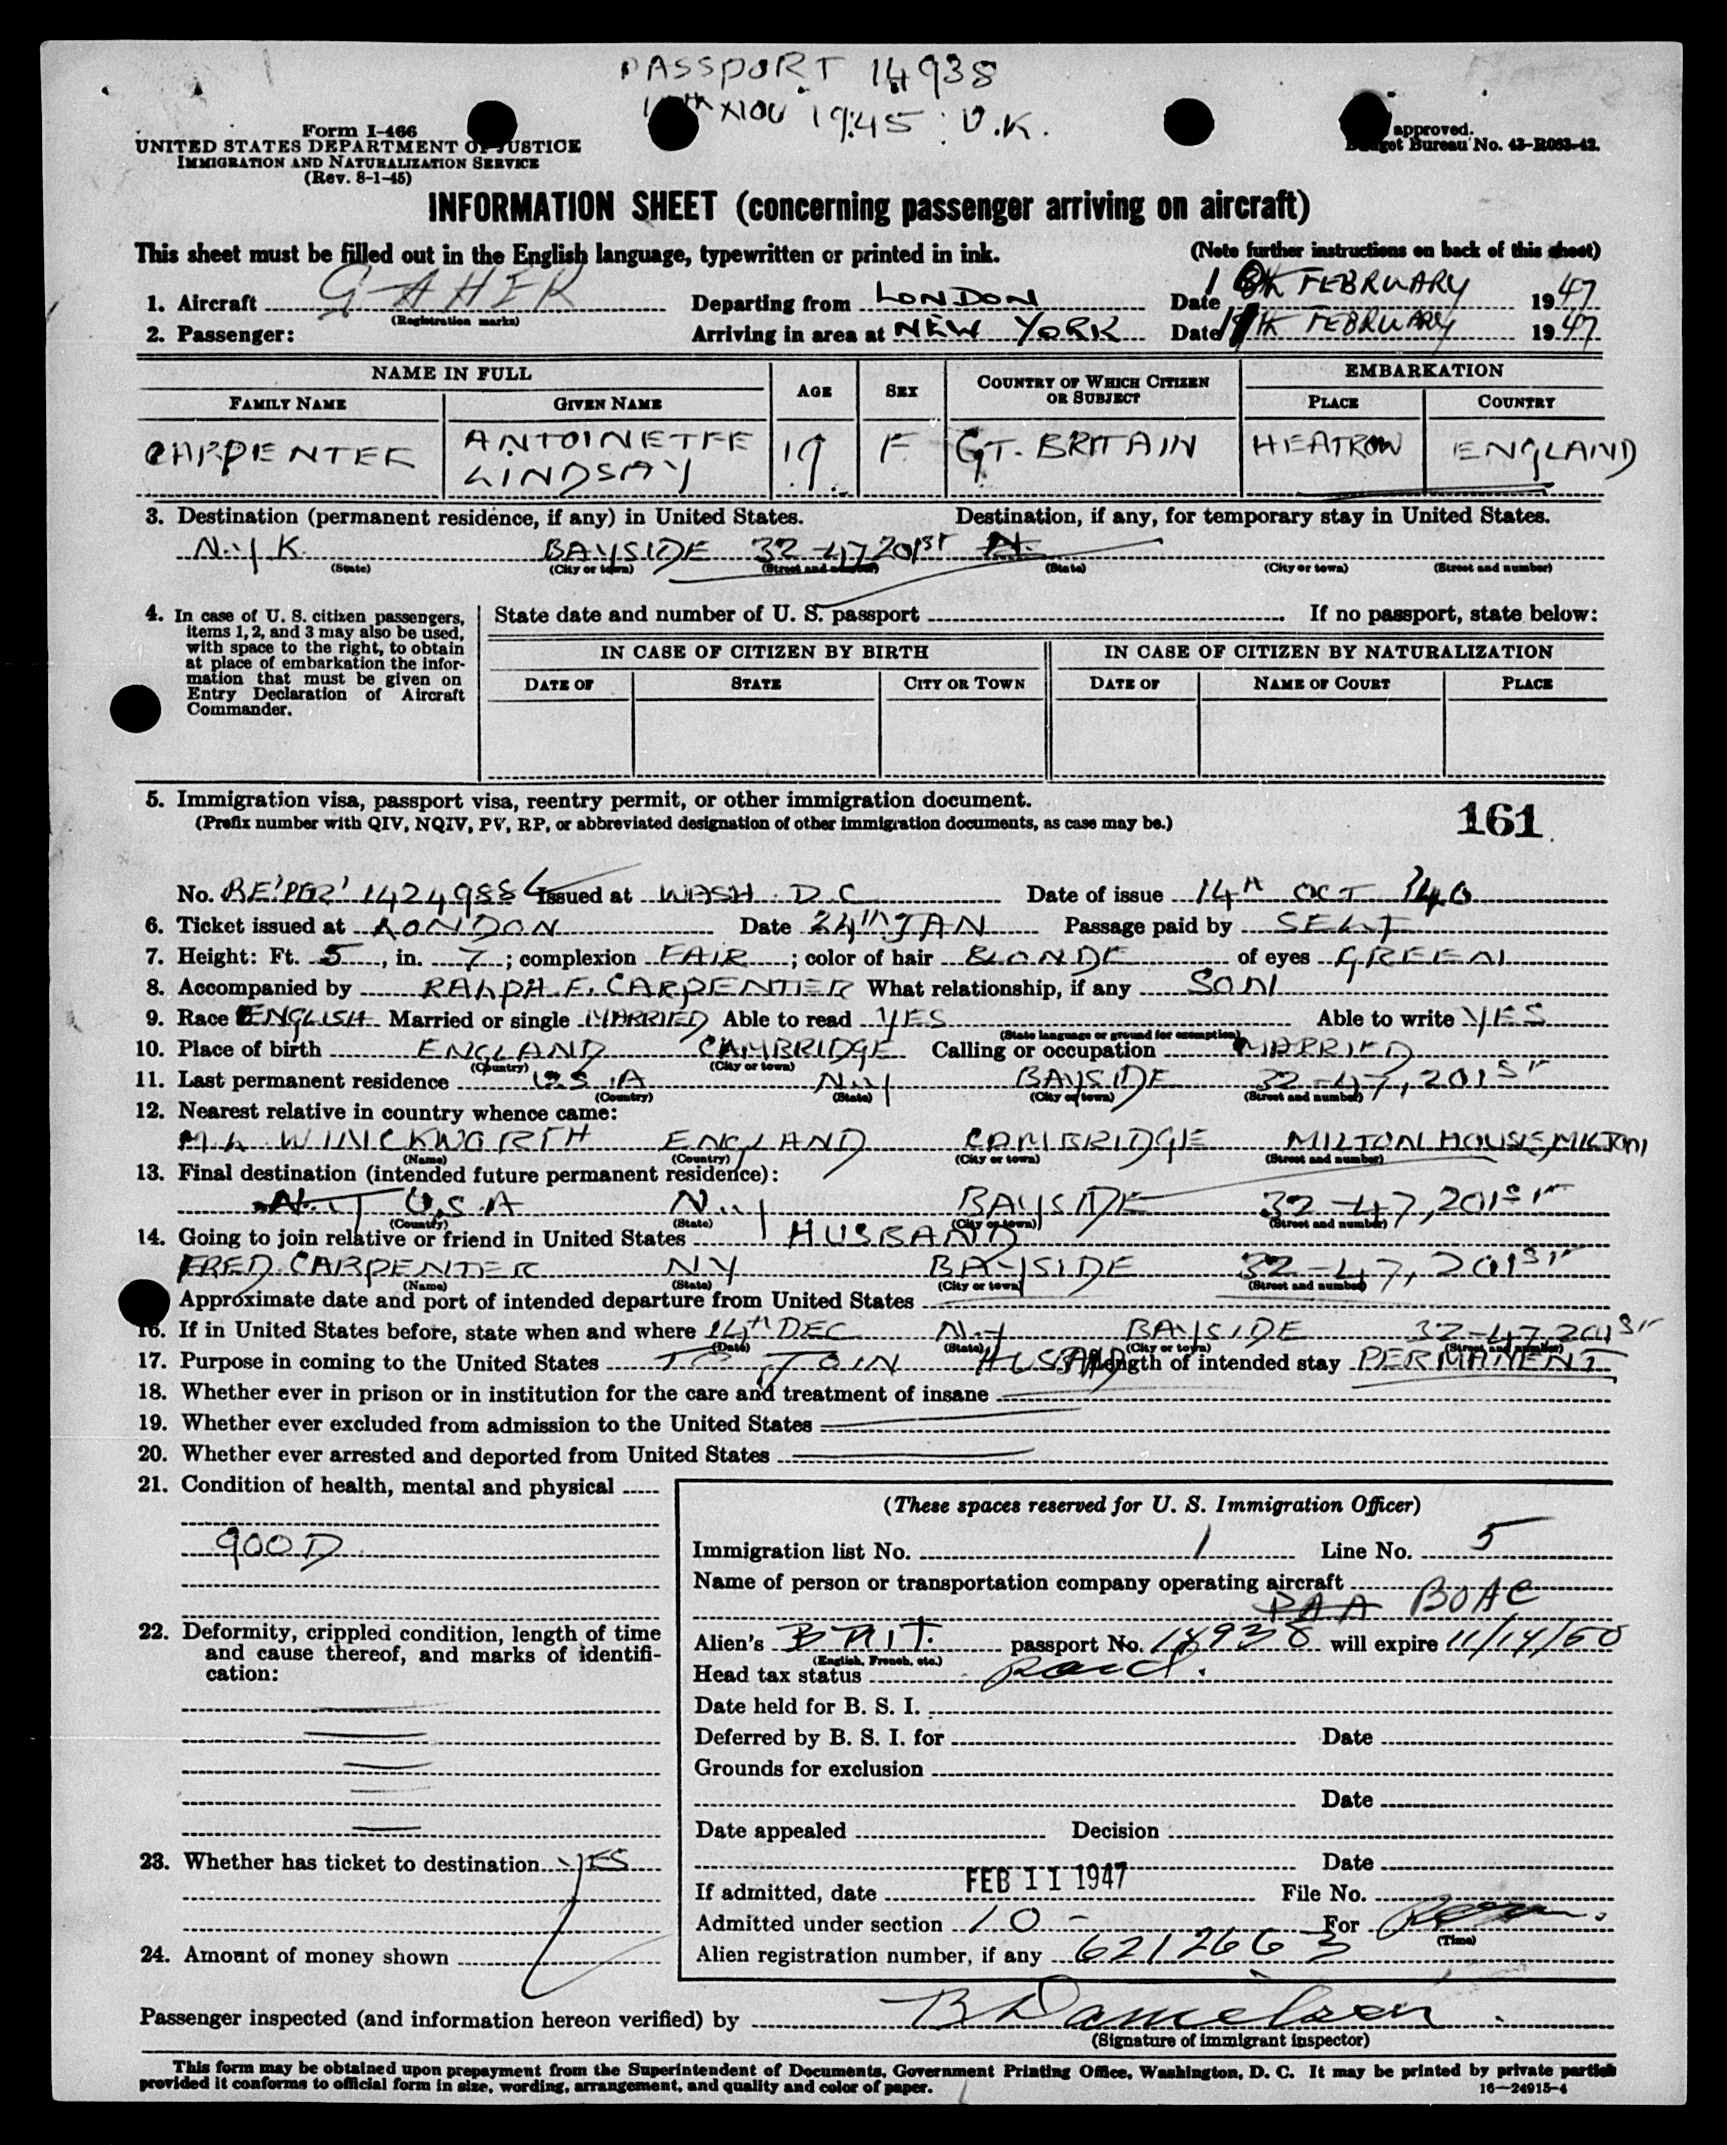 PASSPORT 14938
NOV 1945 : U.K.
Form I-466
UNITED STATES DEPARTMENT OF JUSTICE
IMMIGRATION AND NATURALIZATION SERVICE
(Rev. 8-1-45)
approved.
Budget Bureau No. 43-R083-42.
INFORMATION SHEET (concerning passenger arriving on aircraft)
This sheet must be filled out in the English language, typewritten or printed in ink. (Note further instructions on back of this sheet)
1. Aircraft G-AHER (Registration marks) Departing from LONDON Date FEBRUARY 1947
2. Passenger: Arriving in area at NEW YORK Date FEBRUARY 1947
NAME IN FULL AGE SEX COUNTRY OF WHICH CITIZEN OR SUBJECT EMBARKATION
FAMILY NAME GIVEN NAME PLACE COUNTRY
CARPENTER ANTOINETTE LINDSAY 19 F GT. BRITAIN HEATROW ENGLAND
3. Destination (permanent residence, if any) in United States. Destination, if any, for temporary stay in United States.
N.Y K. BAYSIDE 32-47 201ST N.
(State) (City or town) (Street and number) (State) (City or town) (Street and number)
4. In case of U. S. citizen passengers, items 1, 2, and 3 may also be used, with space to the right, to obtain at place of embarkation the information that must be given on Entry Declaration of Aircraft Commander.
State date and number of U. S. passport If no passport, state below:
IN CASE OF CITIZEN BY BIRTH IN CASE OF CITIZEN BY NATURALIZATION
DATE OF STATE CITY OR TOWN DATE OF NAME OF COURT PLACE
5. Immigration visa, passport visa, reentry permit, or other immigration document.
(Prefix number with QIV, NQIV, PV, RP, or abbreviated designation of other immigration documents, as case may be.)
161
No. RE'PER' 1424988 Issued at WASH. D.C Date of issue 14TH OCT '46
6. Ticket issued at LONDON Date 24TH JAN Passage paid by SELF
7. Height: Ft. 5, in. 7; complexion FAIR; color of hair BLONDE of eyes GREEN
8. Accompanied by RALPH.F. CARPENTER What relationship, if any SON
9. Race ENGLISH Married or single MARRIED Able to read YES (State language or ground for exemption) Able to write YES
10. Place of birth ENGLAND CAMBRIDGE Calling or occupation MARRIED
(Country) (City or town)
11. Last permanent residence U.S.A N.Y BAYSIDE 32-47, 201ST
(Country) (State) (City or town) (Street and number)
12. Nearest relative in country whence came:
M.L WINCKWORTH ENGLAND CAMBRIDGE MILTON HOUSE, MILTON
(Name) (Country) (City or town) (Street and number)
13. Final destination (intended future permanent residence):
U.S.A N.Y BAYSIDE 32-47, 201ST
(Country) (State) (City or town) (Street and number)
14. Going to join relative or friend in United States HUSBAND
FRED CARPENTER NY BAYSIDE 32-47, 201ST
(Name) (State) (City or town) (Street and number)
Approximate date and port of intended departure from United States
16. If in United States before, state when and where 14TH DEC N.Y BAYSIDE 32-47, 201ST
(Date) (State) (City or town) (Street and number)
17. Purpose in coming to the United States TO JOIN HUSBAND Length of intended stay PERMANENT
18. Whether ever in prison or in institution for the care and treatment of insane
19. Whether ever excluded from admission to the United States
20. Whether ever arrested and deported from United States
21. Condition of health, mental and physical
GOOD
22. Deformity, crippled condition, length of time and cause thereof, and marks of identification:
23. Whether has ticket to destination YES
24. Amount of money shown
(These spaces reserved for U. S. Immigration Officer)
Immigration list No. 1 Line No. 5
Name of person or transportation company operating aircraft
PAA BOAC
Alien's BRIT. passport No. 14938 will expire 11/14/50
(English, French, etc.)
Head tax status paid.
Date held for B. S. I.
Deferred by B. S. I. for Date
Grounds for exclusion
Date
Date appealed Decision
Date
If admitted, date FEB 11 1947 File No.
Admitted under section 10- For
(Time)
Alien registration number, if any 6212663
Passenger inspected (and information hereon verified) by B Danielson
(Signature of immigrant inspector)
This form may be obtained upon prepayment from the Superintendent of Documents, Government Printing Office, Washington, D. C. It may be printed by private parties
provided it conforms to official form in size, wording, arrangement, and quality and color of paper. 16-24915-4